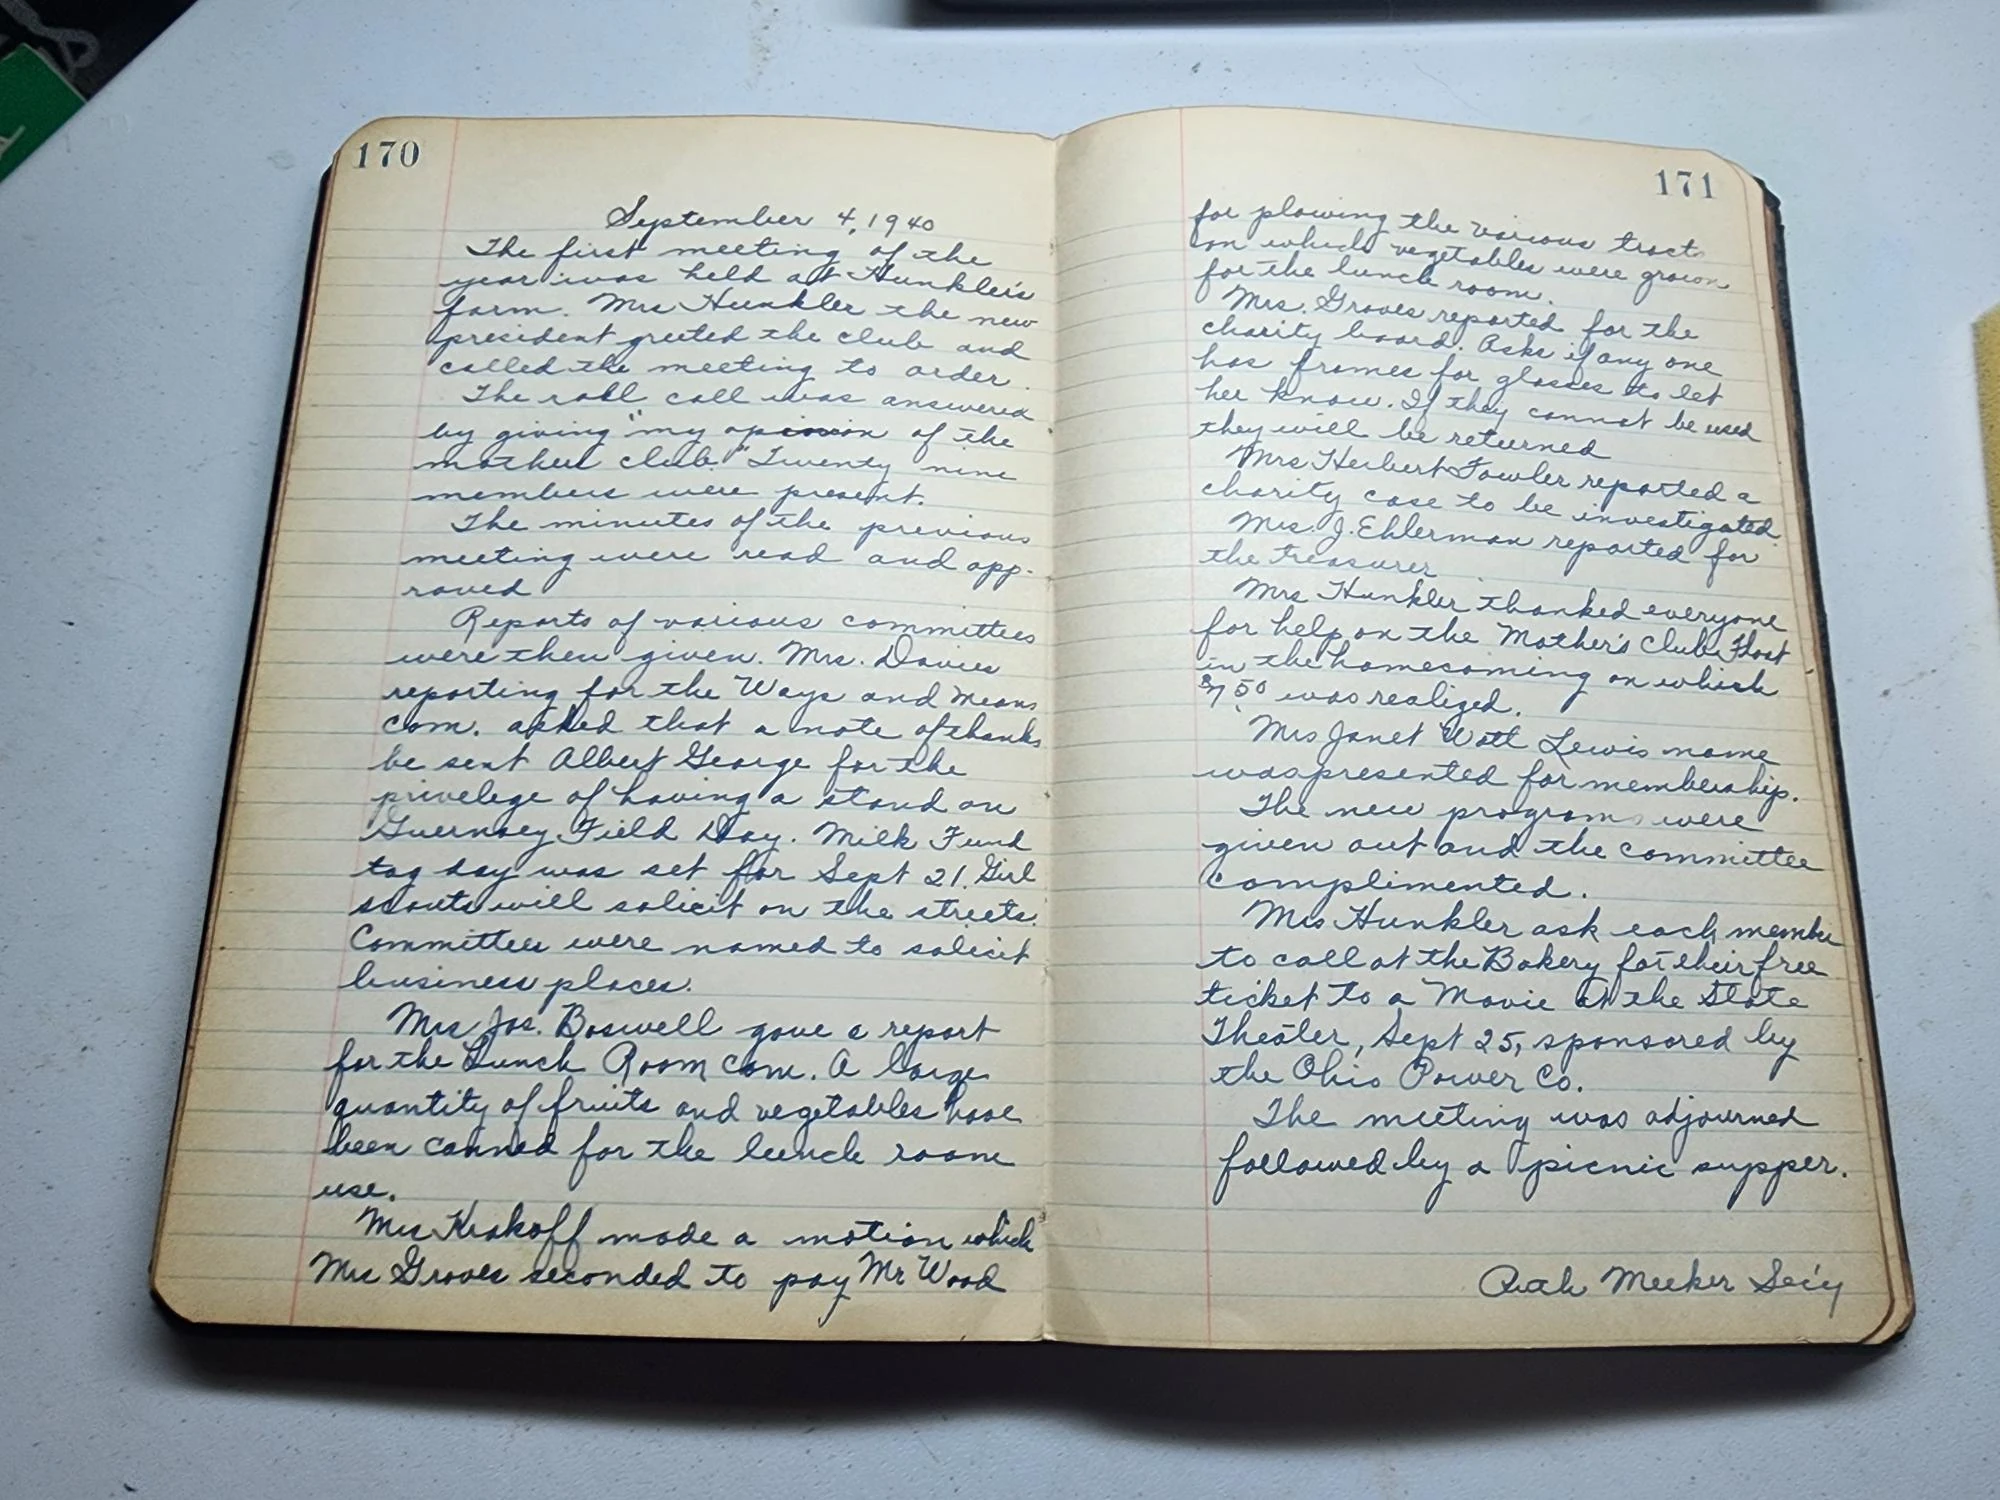 170
September 4, 1940
The first meeting of the
year was held at Hunkler's
farm. Mrs Hunkler the new
president greeted the club and
called the meeting to order.
The roll call was answered
by giving "my opinion of the
mothers club." Twenty nine
members were present.
The minutes of the previous
meeting were read and app-
roved
Reports of various committees
were then given. Mrs. Davies
reporting for the Ways and Means
com. asked that a note of thanks
be sent Albert George for the
privelege of having a stand on
Guernsey Field Day. Milk Fund
tag day was set for Sept 21. Girl
scouts will solicit on the streets.
Committees were named to solicit
business places.
Mrs Jas. Boswell gave a report
for the Lunch Room Com. A large
quantity of fruits and vegetables have
been canned for the lunch room
use.
Mrs Krakoff made a motion which
Mrs Groves seconded to pay Mr Wood
171
for plowing the various tracts
on which vegetables were grown
for the lunch room.
Mrs. Groves reported for the
charity board. Asks if any one
has frames for glasses to let
her know. If they cannot be used
they will be returned
Mrs Herbert Fowler reported a
charity case to be investigated.
Mrs. J. Ehlerman reported for
the treasurer
Mrs Hunkler thanked everyone
for help on the Mother's Club Float
in the homecoming on which
$7.50 was realized.
Mrs Janet Watt Lewis name
was presented for membership.
The new programs were
given out and the committee
complimented.
Mrs Hunkler ask each member
to call at the Bakery for their free
ticket to a Movie at the State
Theater, Sept 25, sponsored by
the Ohio Power Co.
The meeting was adjourned
followed by a picnic supper.
Ruth Meeker Sec'y